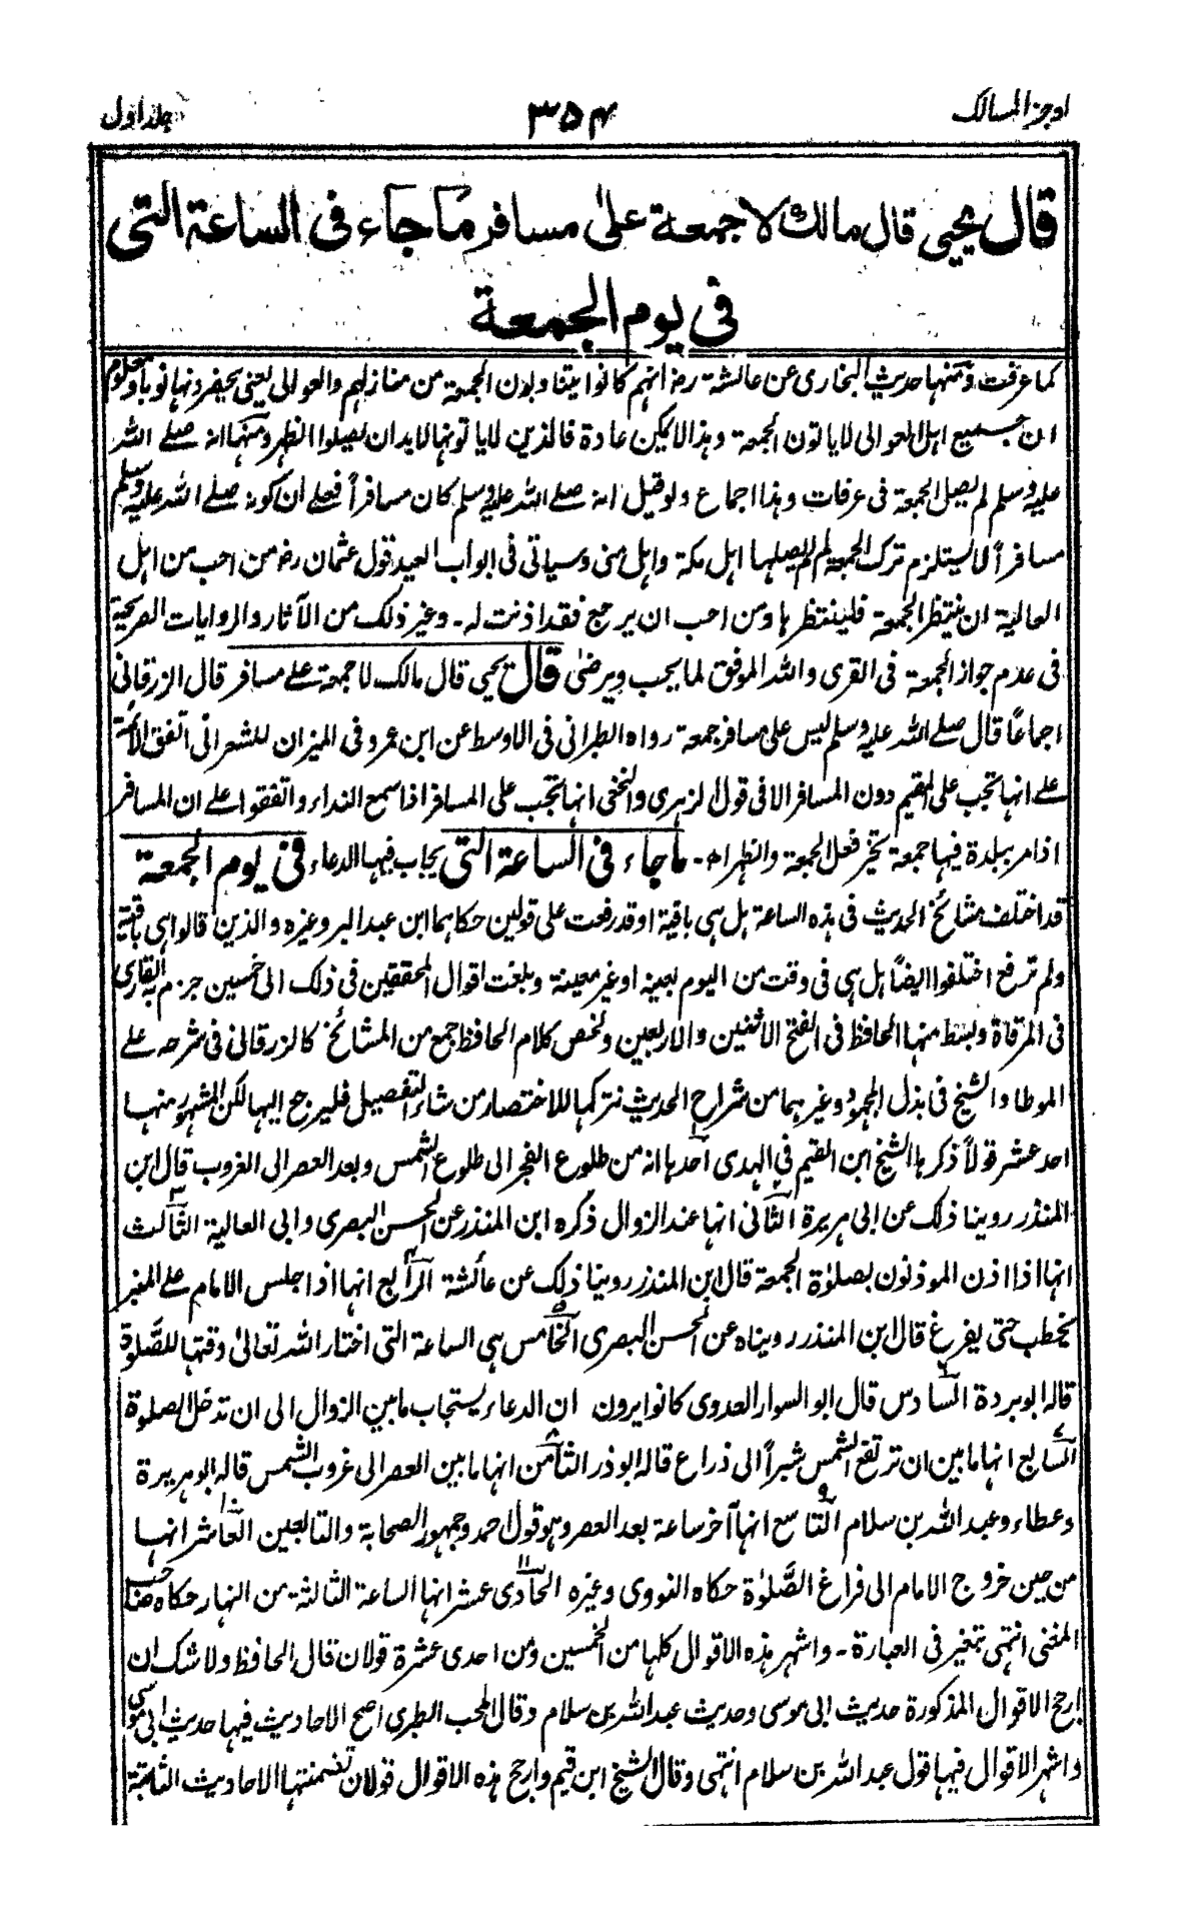 اوجز المسالك
۳۵۴
جلد اول
قال يحيى قال مالك لا جمعة على مسافر ما جاء فى الساعة التى
فى يوم الجمعة
كما عرفت ومنها حديث البخارى عن عائشة رض انهم كانوا ينتابون الجمعة من منازلهم والعوالى يعنى يحضرونها نوبا ومعلوم
ان جميع اهل العوالى لا ياتون الجمعة وهذا لا يمكن عادة فالذين لا ياتونها لا بد ان يصلوا الظهر ومنها انه صلے الله
عليه وسلم لم يصل الجمعة فى عرفات وهذا اجماع ولو قيل انه صلے الله عليه وسلم كان مسافراً فعلے ان كونه صلے الله عليه وسلم
مسافراً لا يستلزم ترك الجمعة لم لم يصلها اهل مكة واهل منى وسياتى فى ابواب العيد قول عثمان رض من احب من اهل
العالية ان ينتظر الجمعة فلينتظرها ومن احب ان يرجع فقد اذنت له۔ وغير ذلك من الآثار والروايات الصريحة
فى عدم جواز الجمعة فى القرى والله الموفق لما يحب ويرضى قال يحيى قال مالك لا جمعة علے مسافر قال الزرقانى
اجماعًا قال صلے الله عليه وسلم ليس على مسافر جمعة رواه الطبرانى فى الاوسط عن ابن عمر وفى الميزان للشعرانى اتفق الائمة
علے انها تجب على المقيم دون المسافر الا فى قول الزهرى والنخعى انها تجب على المسافر اذا سمع النداء واتفقوا علے ان المسافر
اذا مر ببلدة فيها جمعة تخير فعل الجمعة والظهر اھ۔ ما جاء فى الساعة التى يجاب فيها الدعاء فى يوم الجمعة
قد اختلف مشائخ الحديث فى هذه الساعة هل هى باقية او قد رفعت على قولين حكاهما ابن عبد البر وغيره والذين قالوا هى باقية
ولم ترفع اختلفوا ايضاً هل هى فى وقت من اليوم بعينه او غير معينة وبلغت اقوال المحققين فى ذلك الى خمسين جزم به القارى
فى المرقاة وبسط منها الحافظ فى الفتح الاثنين والاربعين ولخص كلام الحافظ جمع من المشائخ كالزرقانى فى شرحه علے
الموطا والشيخ فى بذل المجهود وغيرهما من شراح الحديث نتركها للاختصار من شاء التفصيل فليرجع اليها لكن المشهور منها
احد عشر قولاً ذكرها الشيخ ابن القيم فى الهدى احدها انه من طلوع الفجر الى طلوع الشمس وبعد العصر الى الغروب قال ابن
المنذر روينا ذلك عن ابى هريرة الثانى انها عند الزوال ذكره ابن المنذر عن الحسن البصرى وابى العالية الثالث
انها اذا اذن الموذنون بصلوٰة الجمعة قال ابن المنذر روينا ذلك عن عائشة الرابع انها اذا جلس الامام علے المنبر
يخطب حتى يفرغ قال ابن المنذر رويناه عن الحسن البصرى الخامس هى الساعة التى اختار الله تعالىٰ وقتها للصلوٰة
قاله ابو بردة السادس قال ابو السوار العدوى كانوا يرون ان الدعاء يستجاب ما بين الزوال الى ان تدخل الصلوة
السابع انها ما بين ان ترتفع الشمس شبراً الى ذراع قاله ابو ذر الثامن انها ما بين العصر الى غروب الشمس قاله ابو هريرة
وعطاء وعبد الله بن سلام التاسع انها آخر ساعة بعد العصر وهو قول احمد وجمهور الصحابة والتابعين العاشر انها
من حين خروج الامام الى فراغ الصلوٰة حكاه النووى وغيره الحادى عشر انها الساعة الثالثة من النهار حكاه صاحب
المغنى انتهى بتغير فى العبارة۔ واشهر هذه الاقوال كلها من الخمسين ومن احدى عشرة قولان قال الحافظ ولا شك ان
ارجح الاقوال المذكورة حديث ابى موسى وحديث عبد الله بن سلام وقال المحب الطبرى اصح الاحاديث فيها حديث ابى موسى
واشهر الاقوال فيها قول عبد الله بن سلام انتهى وقال الشيخ ابن قيم وارجح هذه الاقوال قولان تضمنتها الاحاديث الثابتة